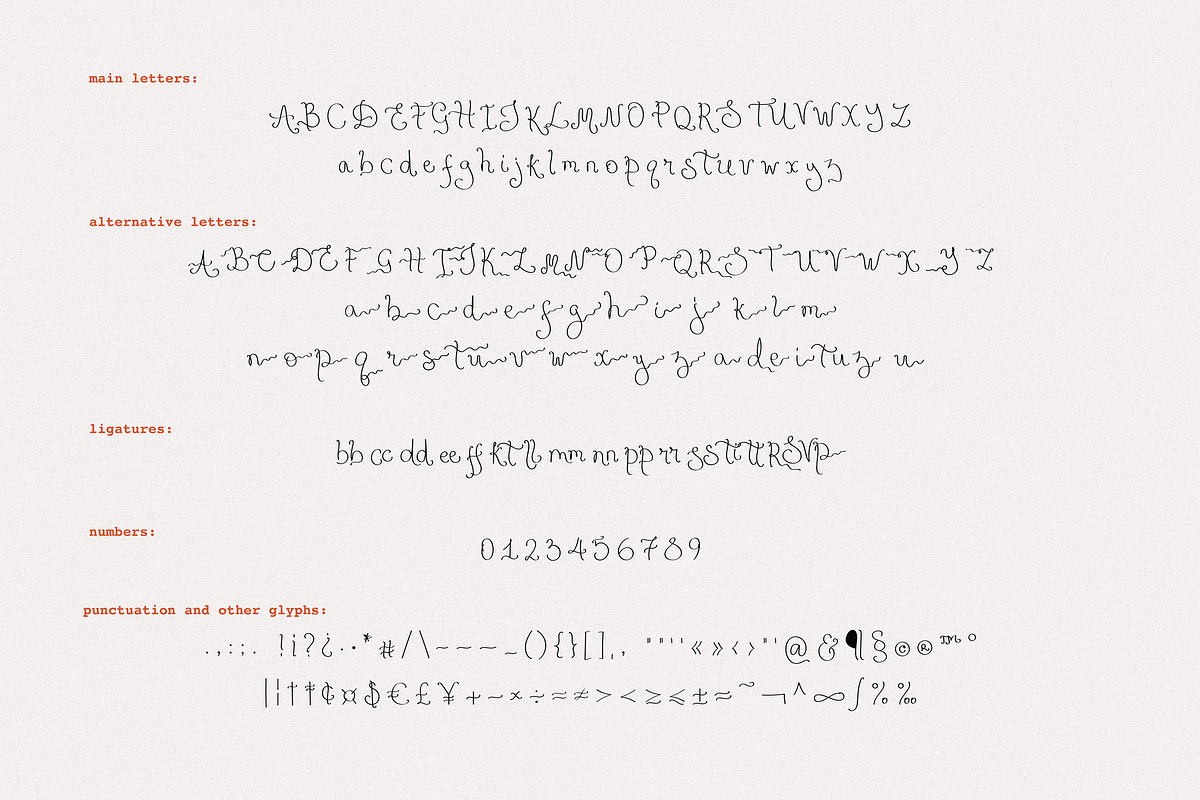 main letters:
A B C D E F G H I J K L M N O P Q R S T U V W X Y Z
a b c d e f g h i j k l m n o p q r s t u v w x y z
alternative letters:
A B C D E F G H I J K L M N O P Q R S T U V W X Y Z
a b c d e f g h i j k l m
n o p q r s t u v w x y z a d e i t u z u
ligatures:
bb cc dd ee ff kt ll mm nn pp rr ss tt tt RSVP
numbers:
0 1 2 3 4 5 6 7 8 9
punctuation and other glyphs:
. , : ; . ! ¡ ? ¿ · • * # / \ - – — _ ( ) { } [ ] , , " " ' ' « » ‹ › " ' @ & ¶ § © ® ™ °
| ¦ † ‡ ¢ ¤ $ € £ ¥ + − × ÷ = ≠ > < ≥ ≤ ± ≈ ~ ¬ ^ ∞ ∫ % ‰